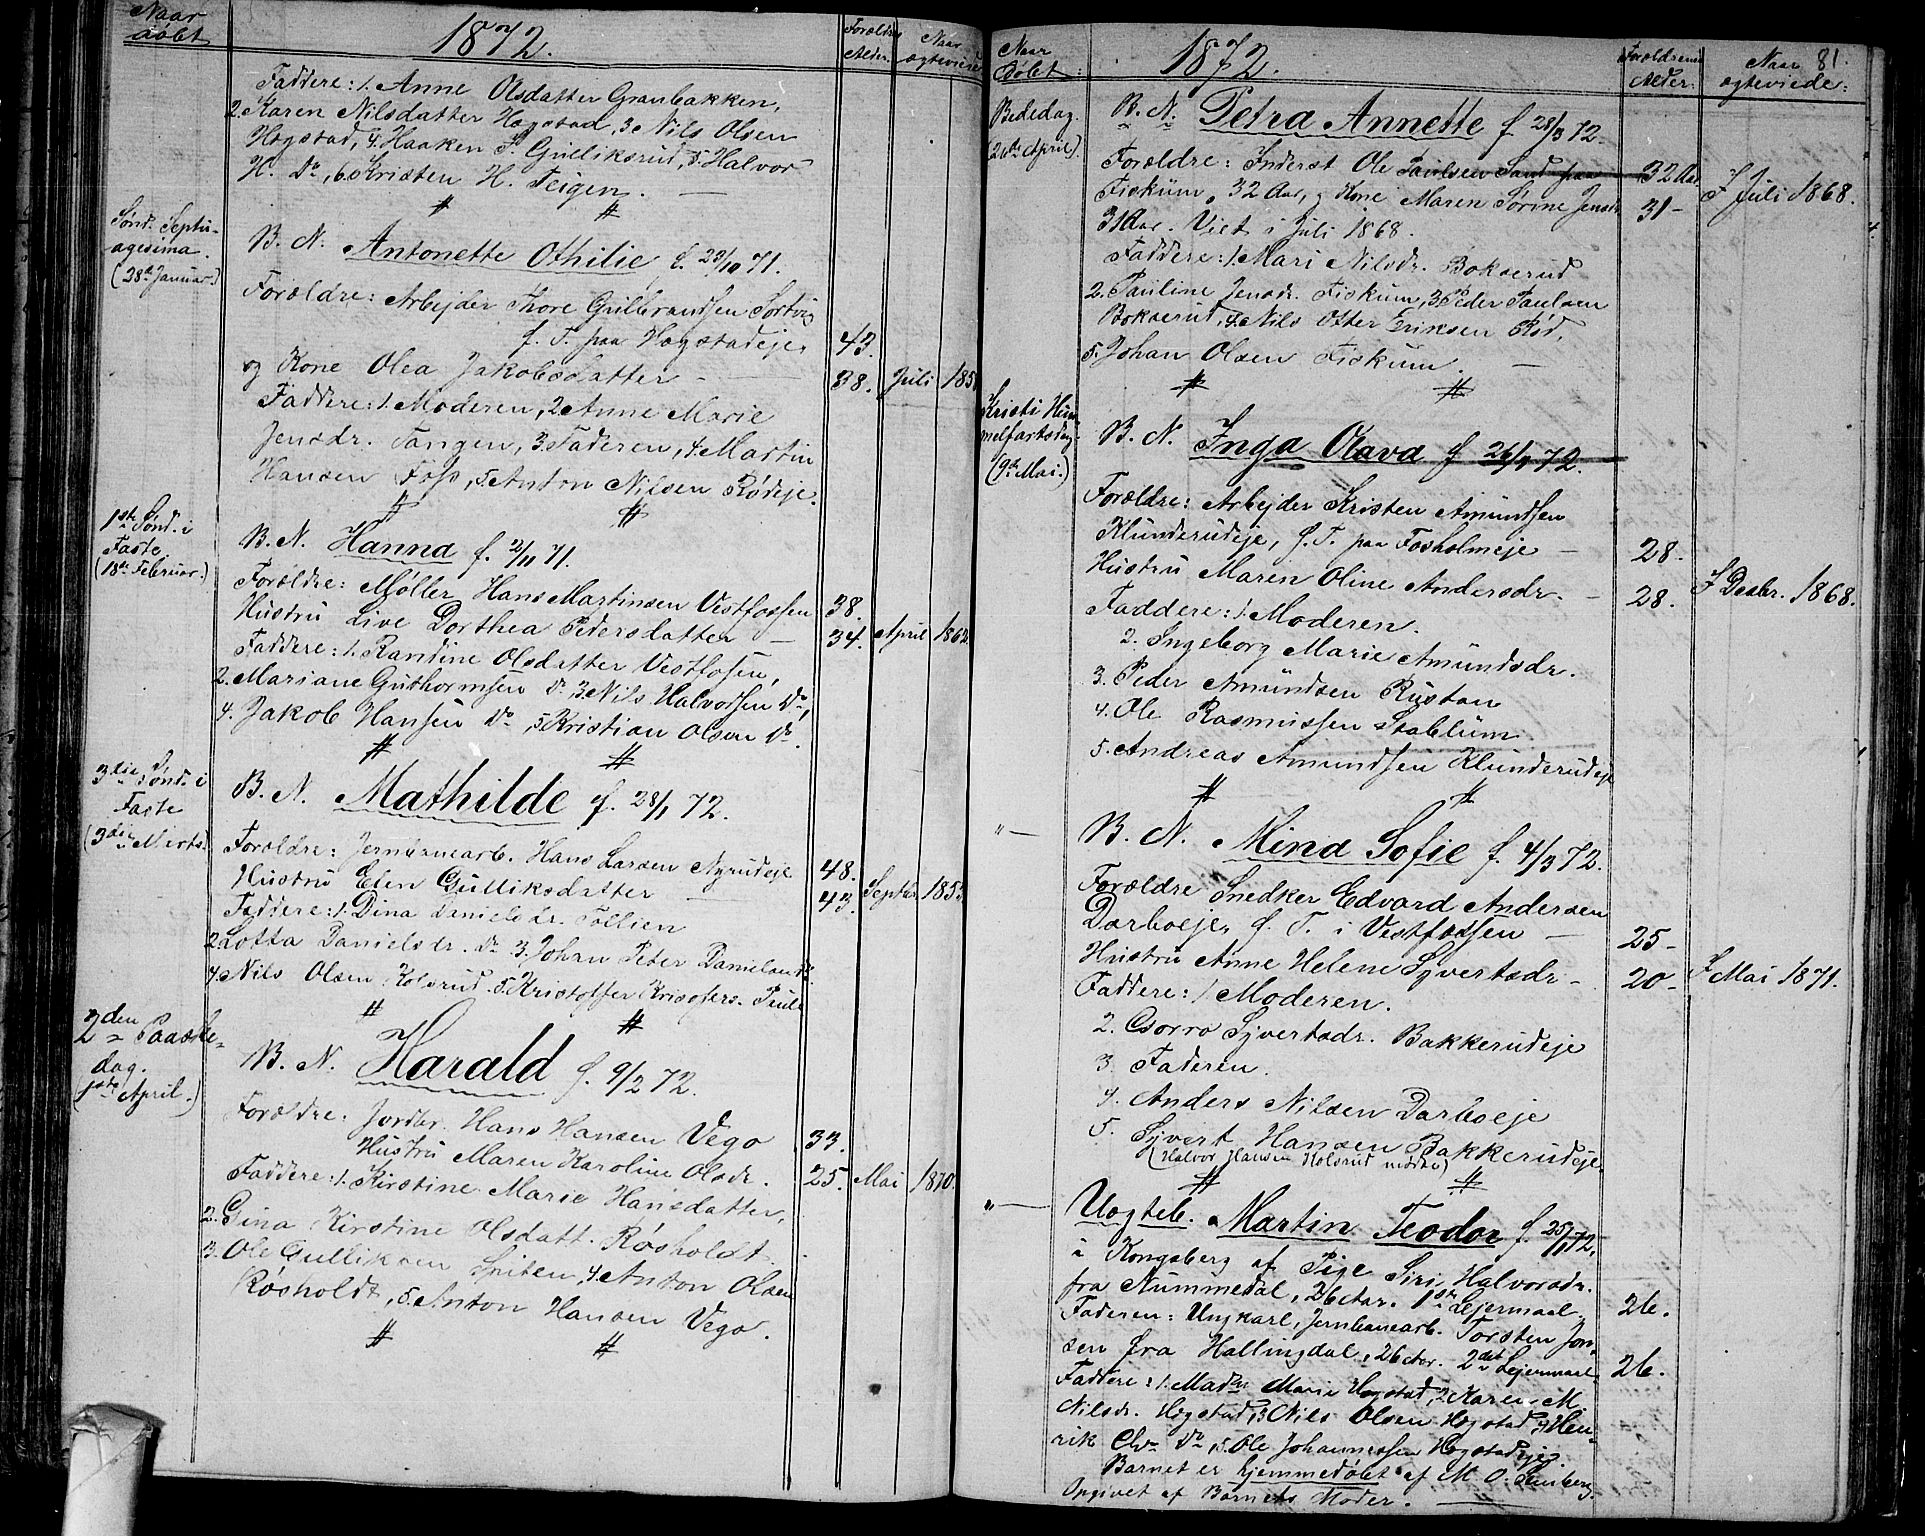 Naar
døbt
1872.
Forældres
Alder.
Naar
ægteviede
Faddere: 1. Anne Olsdatter Granbakken,
2. Karen Nilsdatter Hogstad, 3 Nils Olsen
Hogstad, 4. Haaken P. Gulliksrud, 5. Halvor
H. Do, 6. Kristen H. Teigen. —
# #
Sønd. Septu-
agesima.
(28de Januar.)
B. N. Antonette Othilie f. 23/10 71.
Forældre: Arbejder Thore Gulbrandsen Sortvig
f. T. paa Hogstadeje, 43.
og Kone Olea Jakobsdatter — 38. Juli 185
Faddere: 1. Moderen, 2 Anne Marie
Jensdr. Tangen, 3. Faderen, 4. Martin
Hansen Foss, 5. Anton Nilsen Rødeje.
# #
1ste Sønd. i
Faste.
(18de Februar.)
B. N. Hanna f. 2/11 71.
Forældre: Møller Hans Martinsen Vestfossen 38.
Hustru Live Dorthea Pedersdatter — 34. April 1862
Faddere: 1. Randine Olsdatter Vestfosen,
2. Mariane Guthormsen Do, 3 Nils Halvorsen Do,
4. Jakob Hansen Do, 5 Kristian Olsen Do.
# #
3die Sønd. i
Faste
(3die Marts)
B. N. Mathilde f. 28/1 72.
Forældre: Jernbanearb. Hans Larsen Nyrudeje 48.
Hustru Elen Gulliksdatter — 43. Septbr. 1853
Faddere: 1. Dina Danielsdr. Tollien
2. Lotta Danielsdr. Do 3. Johan Peter Danielsen Do
4. Nils Olsen Kolsrud. 5. Kristoffer Kristofers.
# #
2den Paaske-
dag.
(1ste April.)
B. N. Harald f. 9/2 72.
Forældre. Jordbr. Hans Hansen Vego 33.
Hustru Maren Karoline Olsdr. 25. Mai 1870.
Faddere: 1. Kirstine Marie Hansdatter,
2. Gina Kirstine Olsdatt. Røsholdt
3. Ole Gulliksen Spiten, 4. Anton Olsen
Røsholdt, 5. Anton Hansen Vego.
# #
Naar
døbt:
1872.
Forældrenes
Alder:
Naar
ægteviede:
81.
Bededag.
(26de April).
B. N. Petra Annette f. 28/3 72.
Forældre: Inderst Ole Paulsen Sand paa 32 Aar.
Fiskum, 32 Aar, og Kone Maren Sorine Jensdr 31- F Juli 1868.
31 Aar. Viet i Juli 1868.
Faddere: 1. Mari Nilsdr. Bokserud
2. Pauline Jensdr. Fiskum, 3. Peder Paulsen
Bokserud, 4. Nils Otter Eriksen Rød,
5. Johan Olsen Fiskum. —
# #
Kristi Him-
melfartsdag.
(9de Mai.)
B. N. Inga Olava f 26/1 72.
Forældre: Arbejder Kristen Amundsen
Klunderudeje, f. T. paa Fosholmeje — 28-
Hustru Maren Oline Andersdr. — 28. F Desbr. 1868.
Faddere: 1. Moderen.
2. Ingeborg Marie Amundsdr.
3. Peder Amundsen Rustan
4. Ole Rasmussen Stablum
5. Andreas Amundsen Klunderudeje
# #
"—
B. N. Mina Sofie f. 4/3 72.
Forældre Snedker Edvard Andersen
Darboeje, f. T. i Vestfossen — 25-
Hustru Anne Helene Syvertsdr — 20- F Mai 1871.
Faddere: 1 Moderen.
2. Syvertsdr. Bakkerudeje
3 Faderen.
4. Anders Nilsen Darboeje
5. Syvert Hansen Bakkerudeje
(Halvor Hansen Kolsrud nedre)
# #
"—
Uægteb. Martin Teodor f. 25/1 72,
i Kongsberg af Pige Siri Halvorsdr.
fra Nummedal, 26 Aar. 1ste Lejermaal 26.
Faderen: Ungkarl, Jernbanearb. Torsten Jon-
sen fra Hallingdal, 26 Aar. 2det Lejermaal 26.
Faddere: 1. Madm Marie Hogstad, 2 Karen M.
Nilsdr. Hogstad, 3 Nils Olsen Hogstad, 4 Hen-
rik Chr. Do, 5. Ole Johannessen Hogstadeje.
Barnet er hjemmedøbt af M. O.
Opgivet af Barnets Moder. —